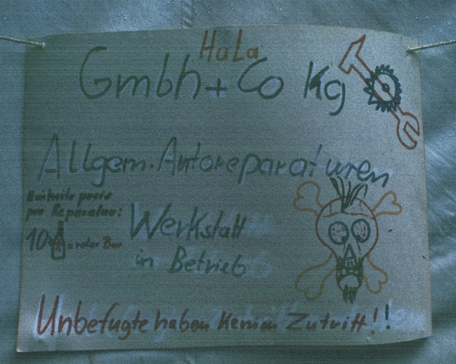 HuLa
Gmbh + Co Kg
Allgem. Autoreparaturen
Einheits preis
pro Reparatur:
10 = roter Bar
Werkstatt
in Betrieb
Unbefugte haben keinen Zutritt!!